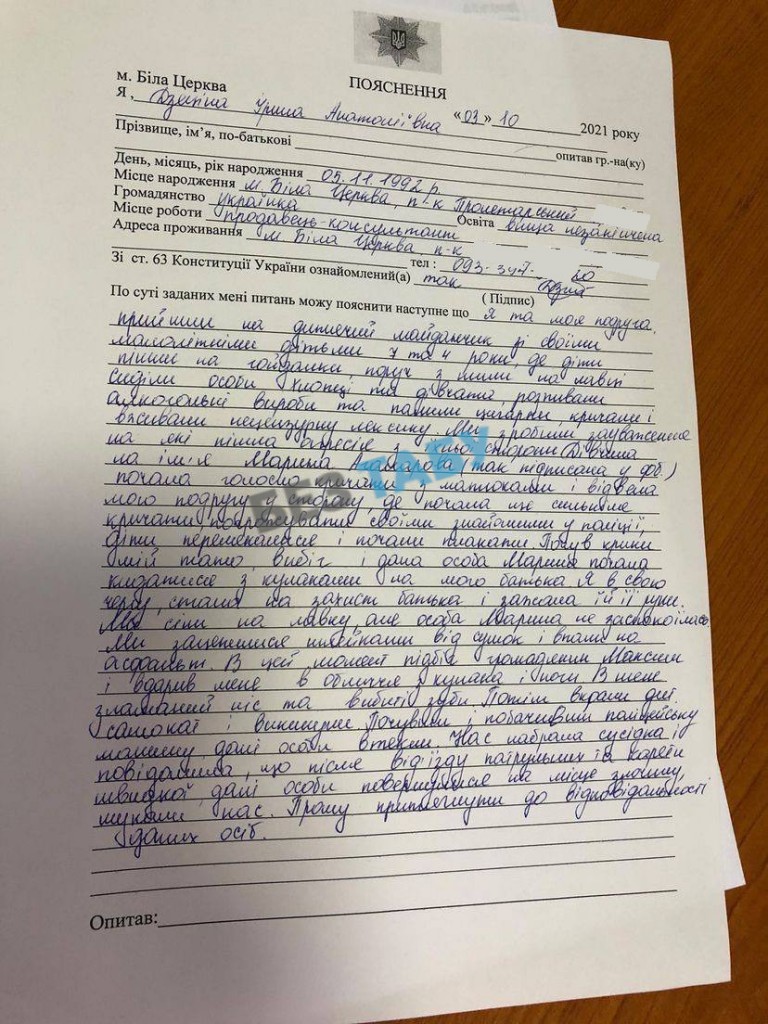 ПОЯСНЕННЯ
м. Біла Церква
Я , Ірина Анатоліївна «03» 10 2021 року
Прізвище, ім’я, по-батькові опитав гр.-на(ку)
День, місяць, рік народження 05.11.1992 р.
Місце народження м. Біла Церква, п-к Пролетарський
Громадянство українка Освіта вища незакінчена
Місце роботи продавець-консультант
Адреса проживання м. Біла Церква, п-к
тел : 093-347- 20
Зі ст. 63 Конституції України ознайомлений(а) так
( Підпис)
По суті заданих мені питань можу пояснити наступне що Я та моя подруга,
прийшли на дитячий майданчик зі своїми
малолітніми дітьми 7 та 4 роки, де діти
пішли на гойдалки, поруч з ними на лавці
сиділи особи хлопці та дівчата, розпивали
алкогольні вироби та палили цигарки, кричали і
вживали нецензурну лексику. Ми зробили зауваження
на які пішла агресія з їхньої сторони. Дівчина
на ім'я Марина (так підписана у фб.)
почала голосно кричати з матюками і відвела
мою подругу у сторону, де почала ще сильніше
кричати своїми знайомими у поліції,
діти перелякалися і почали плакати. Почув крики
мій тато, вибіг і дана особа Марина почала
кидатися з кулаками на мого батька. Я в свою
чергу, стала на захист батька і зажала їй її руки.
Ми сіли на лавку, але особа Марина не заспокоїлась.
Ми зачепилися шлейками від сумок і впали на
асфальт. В цей момент підбіг громадянин Максим
і вдарив мене в обличчя з кулака і ноги. В мене
зламаний ніс та вибиті зуби. Потім вкрали
самокат і викинули. Почувши і побачивши поліцейську
машину, дані особи втекли. Нас набрала сусідка і
повідомила, що після від'їзду патрульних та карети
швидкої, дані особи повернулися на місце злочину,
шукали нас. Прошу притягнути до відповідальності
даних осіб.
Опитав:
БЕЗ ТАБУ